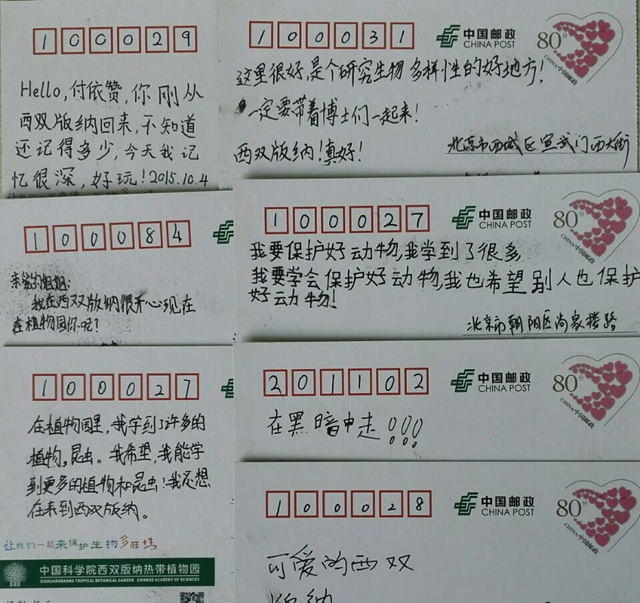 100029
Hello,付依赞,你刚从
西双版纳回来,不知道
还记得多少,今天我记
忆很深,好玩!2015.10.4
100031
中国邮政
CHINA POST
80分
中国邮政
CHINA POST
这里很好,是个研究生物多样性的好地方!
一定要带着博士们一起来!
西双版纳!真好!
北京市西城区宣武门西大街
100084
亲爱的姐姐:
我在西双版纳很开心现在
在植物园你呢?
100027
中国邮政
CHINA POST
80分
中国邮政
CHINA POST
我要保护好动物,我学到了很多
我要学会保护好动物,我也希望别人也保护
好动物!
北京市朝阳区尚家楼路
100027
在植物园里,我学到了许多的
植物,昆虫。我希望,我能学
到更多的植物和昆虫!我还想
在来到西双版纳。
让我们一起来保护生物多样性
中国科学院西双版纳热带植物园
XISHUANGBANNA TROPICAL BOTANICAL GARDEN CHINESE ACADEMY OF SCIENCES
201102
中国邮政
CHINA POST
80分
中国邮政
CHINA POST
在黑暗中走!!!
100028
中国邮政
CHINA POST
80分
中国邮政
CHINA POST
可爱的西双
版纳